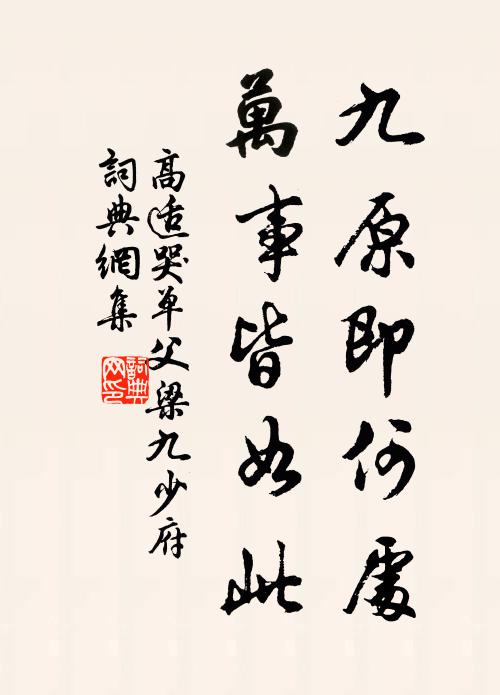 九原即何處
萬事皆如此
高适哭單父梁九少府
詞典網集
詞典網印